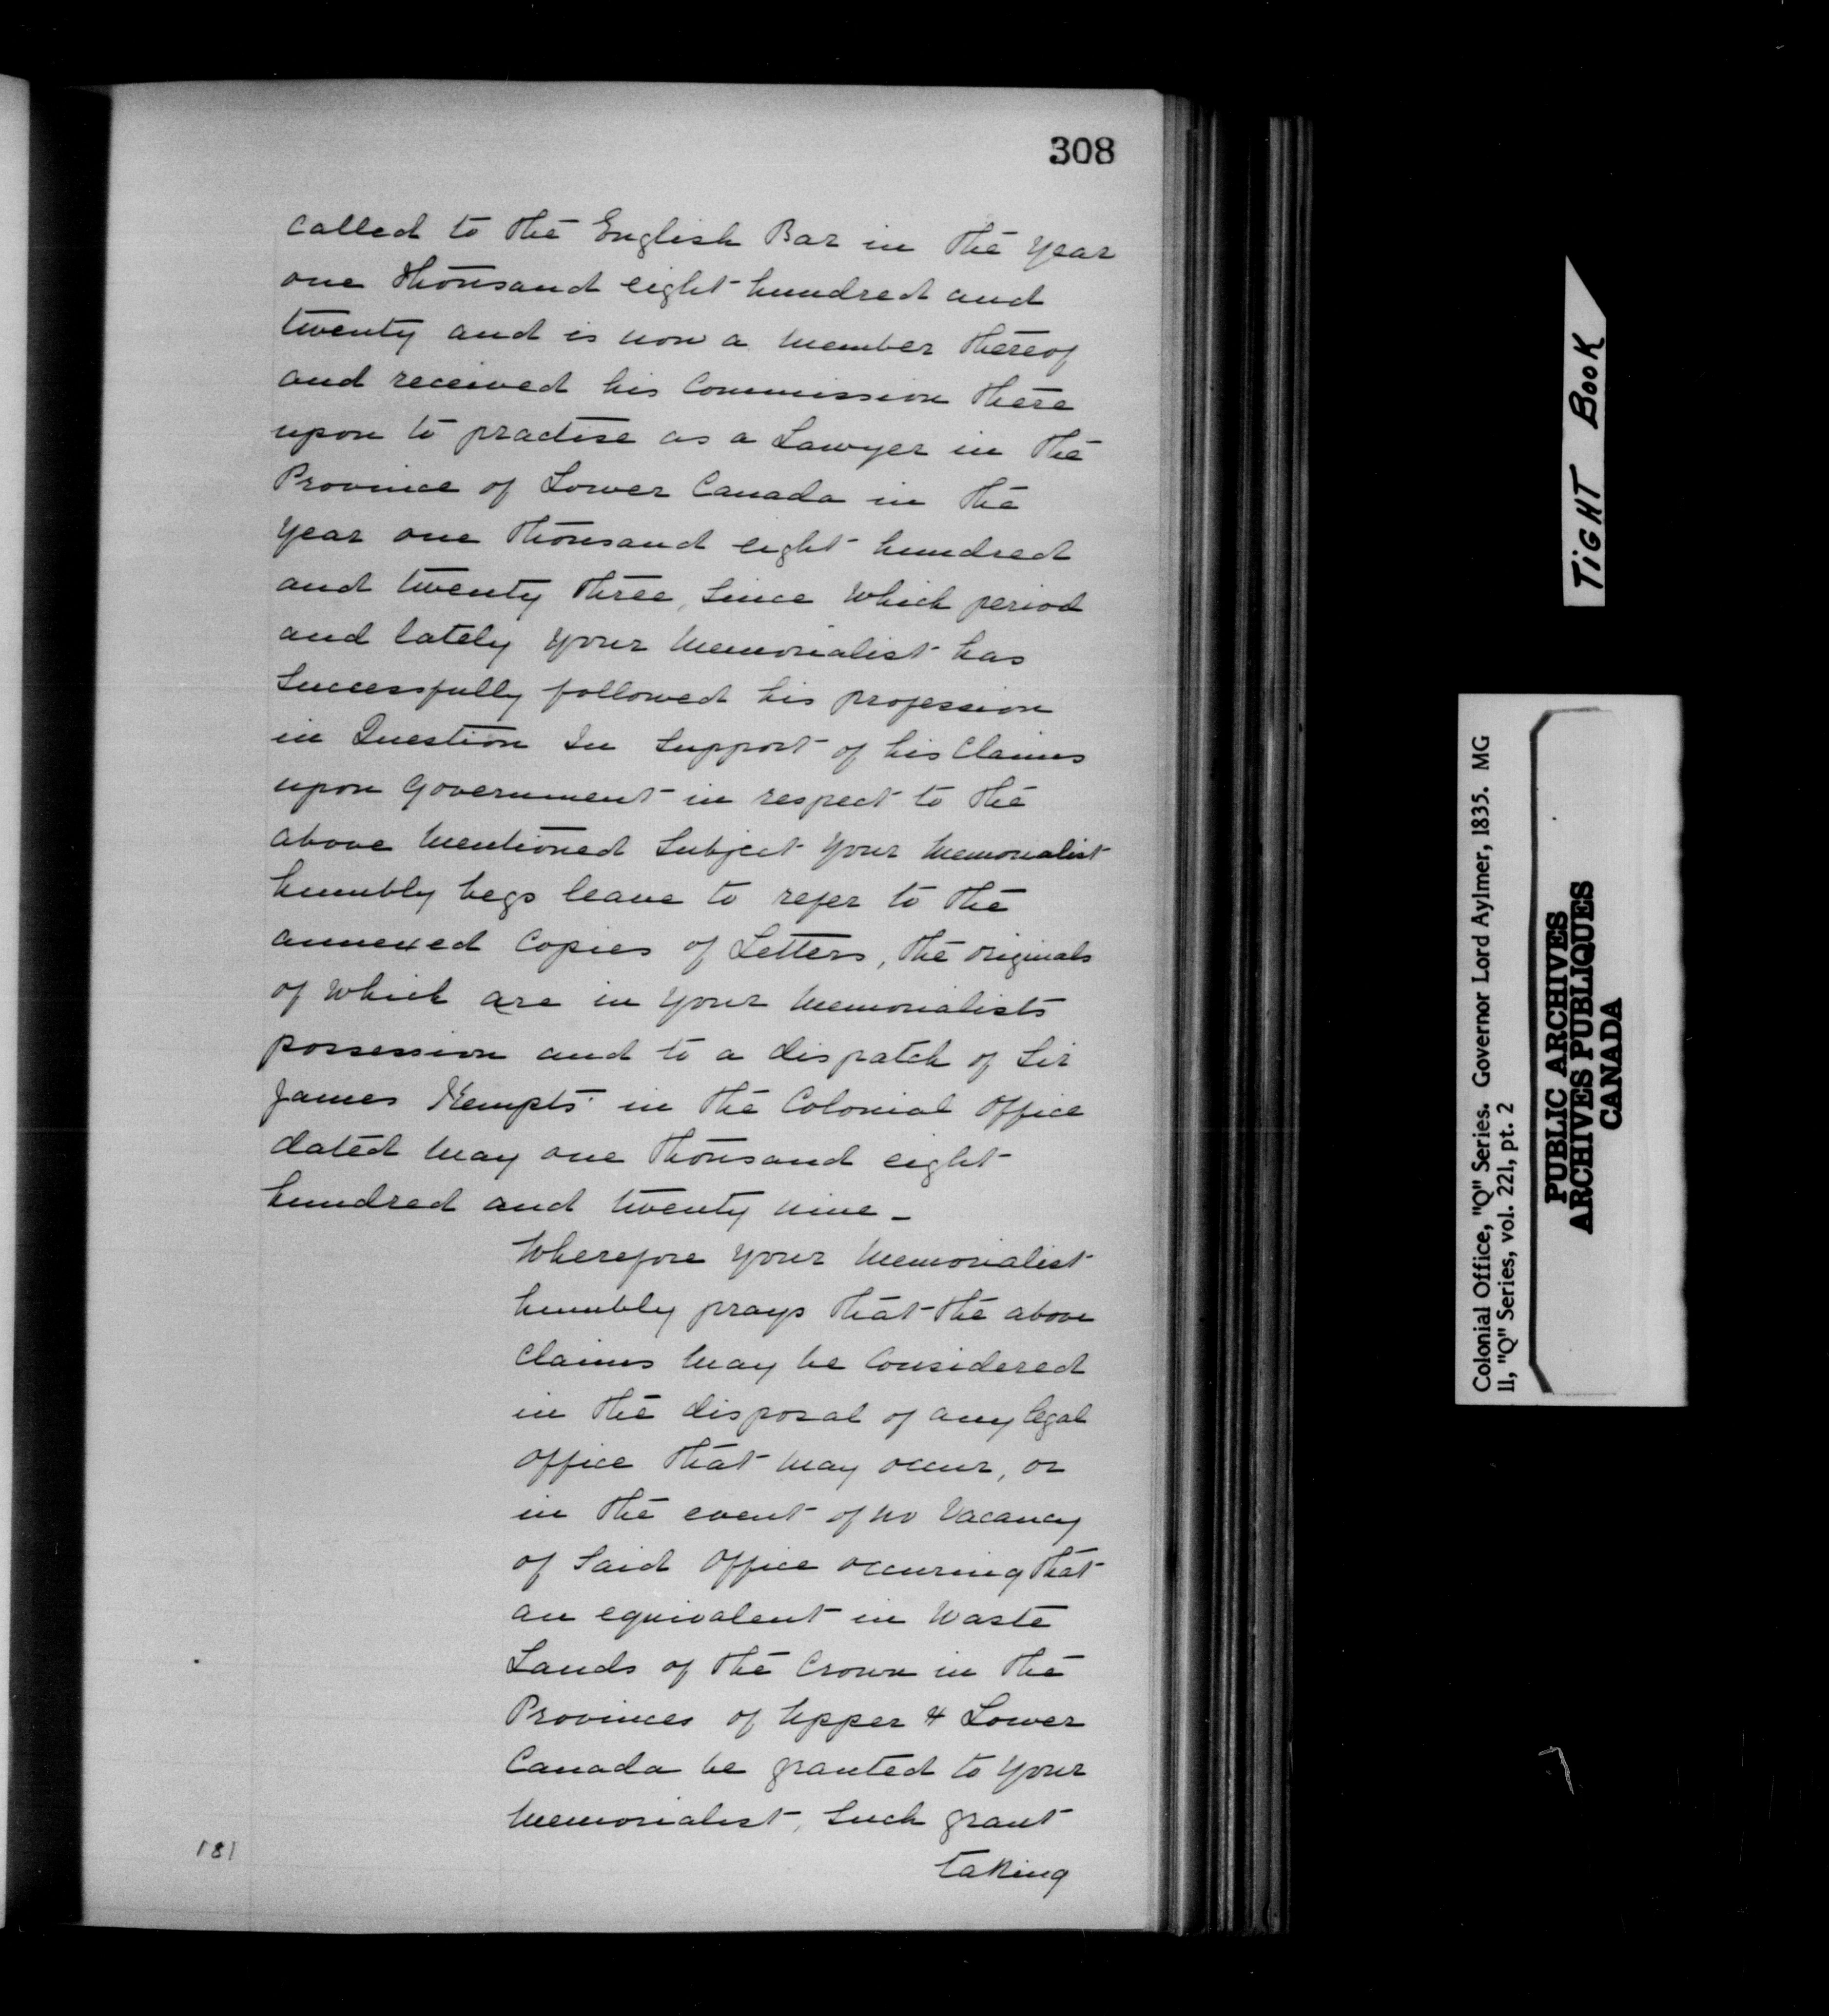 308
called to the English Bar in the year
one thousand eight hundred and
twenty and is now a member thereof
and received his Commission there
upon to practise as a Lawyer in the
Province of Lower Canada in the
year one thousand eight hundred
and twenty three, since which period
and lately your Memorialist has
successfully followed his profession
in Question In support of his Claims
upon Government in respect to the
above mentioned Subject your Memorialist
humbly begs leave to refer to the
annexed Copies of Letters, the originals
of which are in your Memorialists
possession and to a dispatch of Sir
James Kempts in the Colonial Office
dated May one thousand eight
hundred and twenty nine_
Wherefore your Memorialist
humbly prays that the above
Claims may be Considered
in the disposal of any legal
office that may occur, or
in the event of no Vacancy
of Said Office occuring that
an equivalent in Waste
Lands of the Crown in the
Provinces of Upper & Lower
Canada be granted to your
Memorialist, Such grant
taking
181
TIGHT BOOK
Colonial Office, "Q" Series. Governor Lord Aylmer, 1835. MG
11, "Q" Series, vol. 221, pt. 2
PUBLIC ARCHIVES
ARCHIVES PUBLIQUES
CANADA